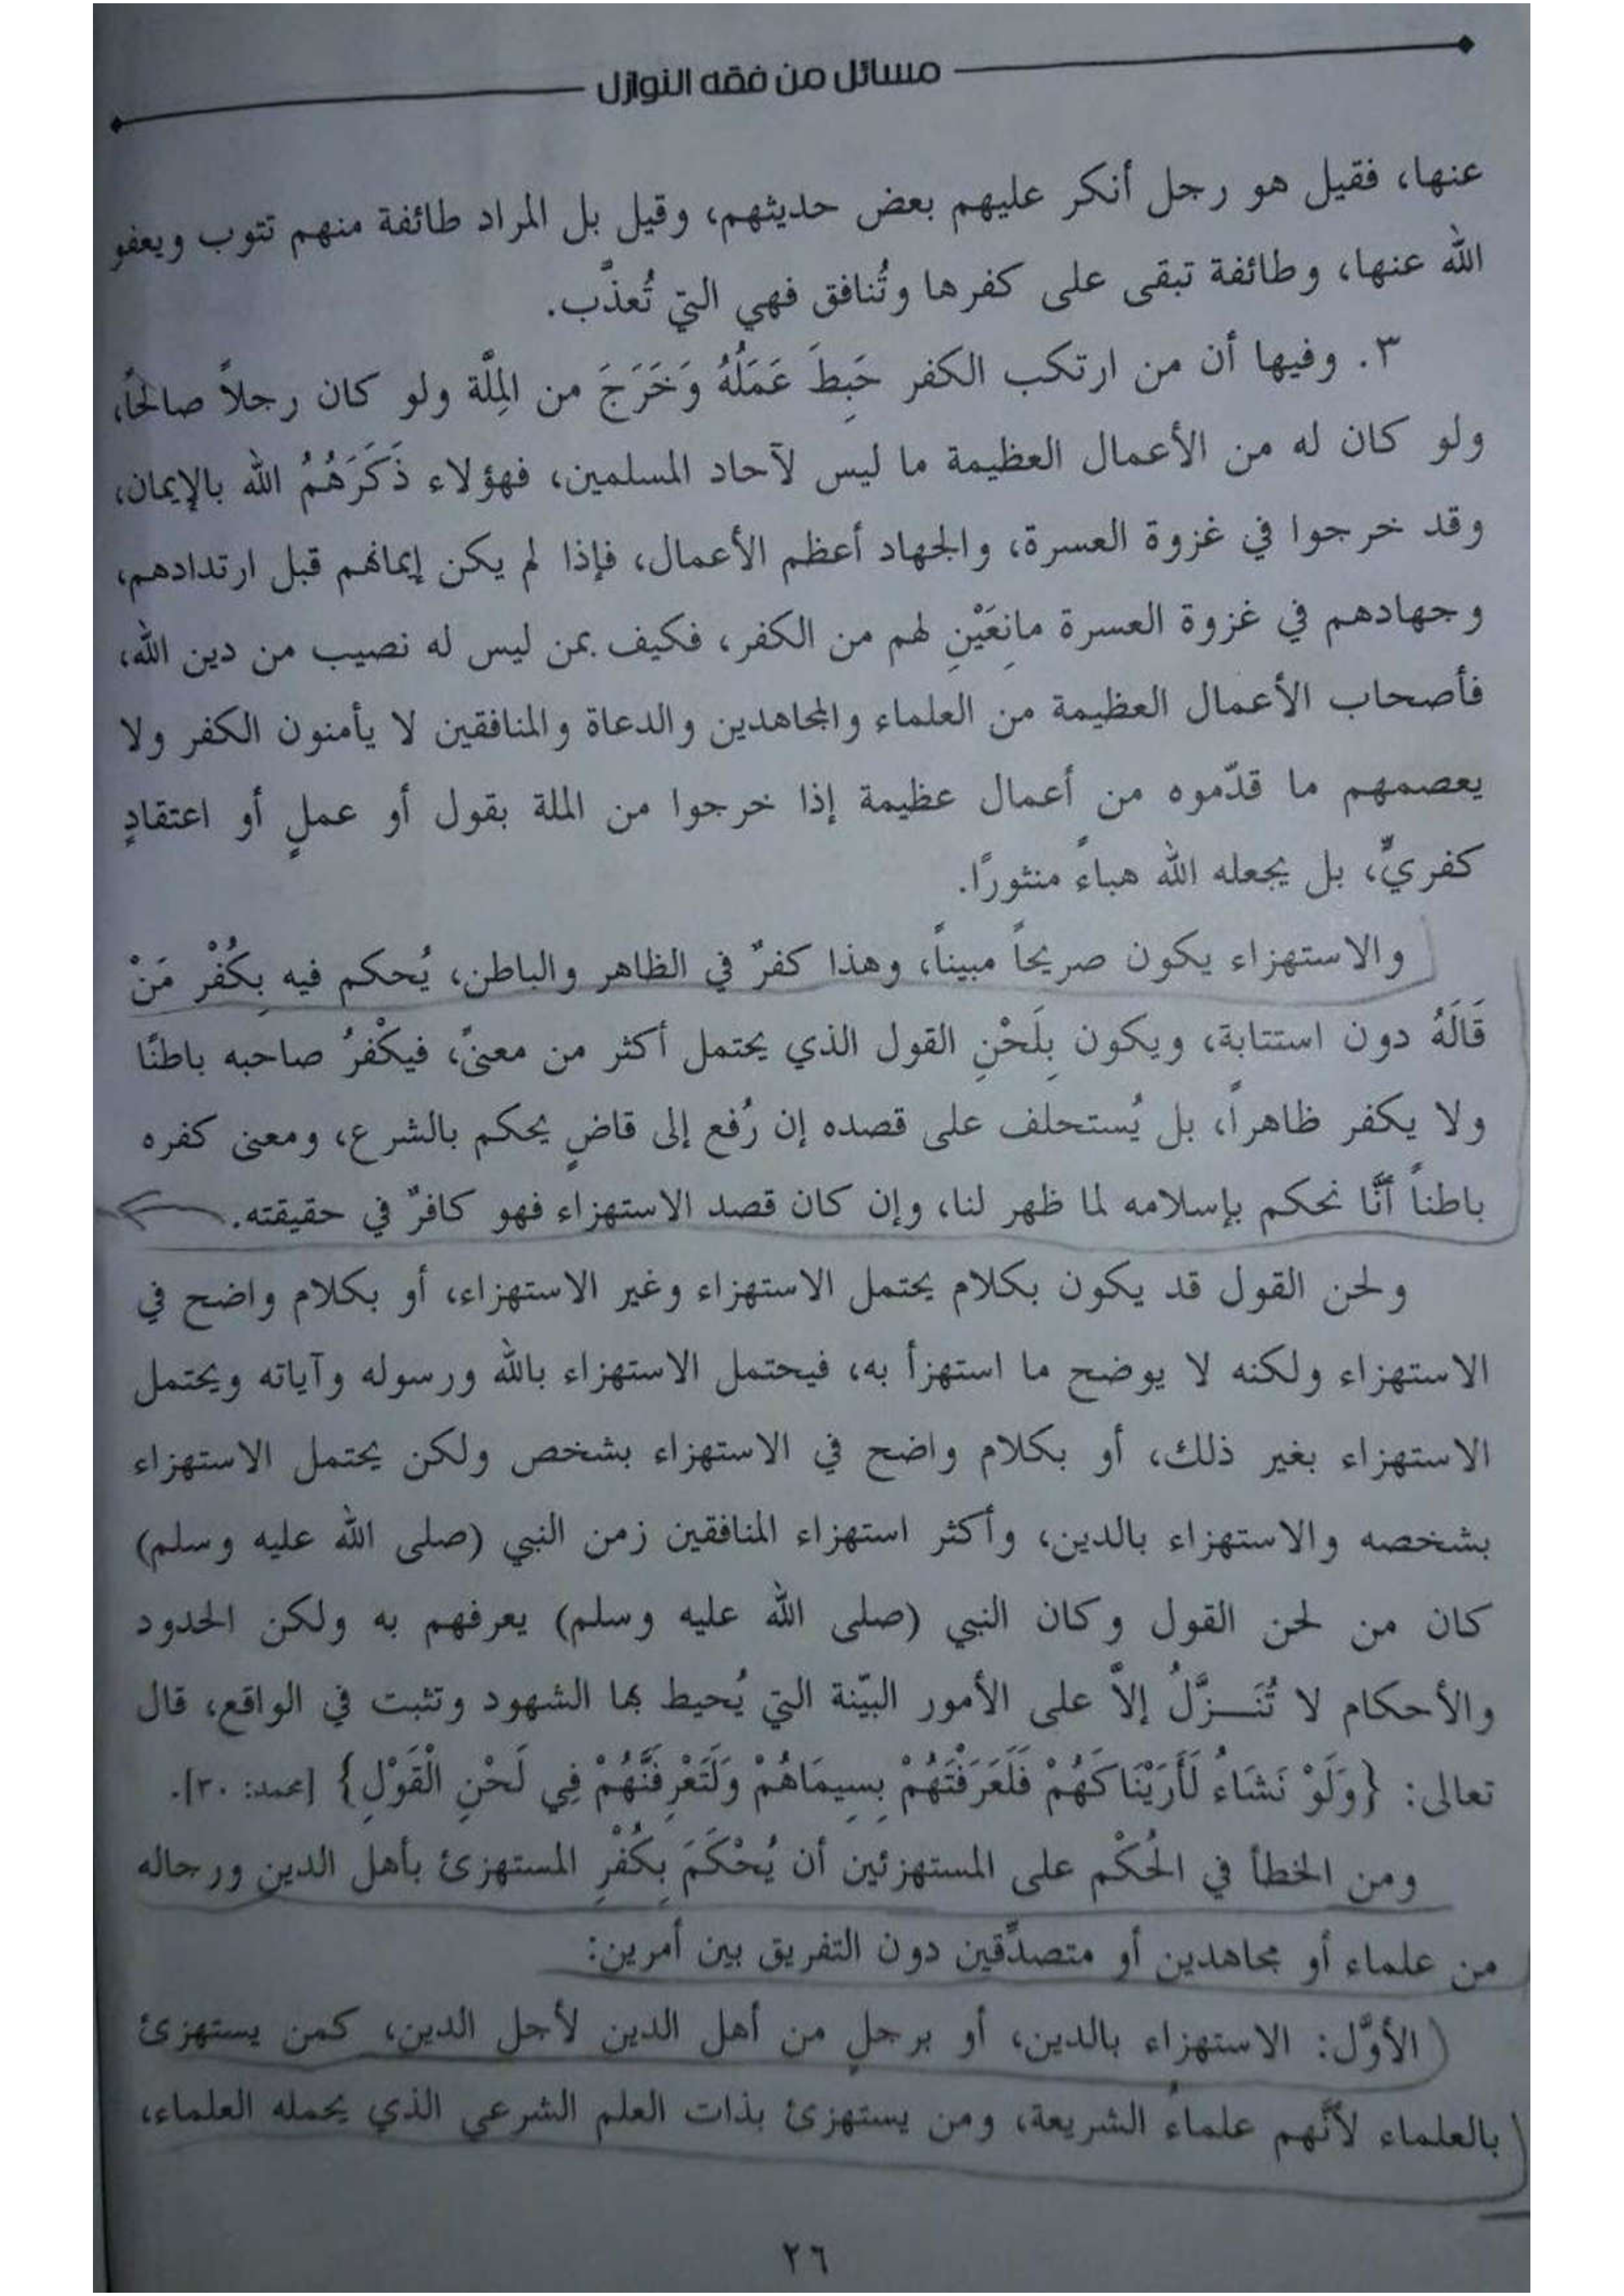 مسائل من فقه النوازل
عنها، فقيل هو رجل أنكر عليهم بعض حديثهم، وقيل بل المراد طائفة منهم تتوب ويعفو
الله عنها، وطائفة تبقى على كفرها وتُنافق فهي التي تُعذَّب.
٣. وفيها أن من ارتكب الكفر حَبِطَ عَمَلُهُ وَخَرَجَ من المِلّة ولو كان رجلاً صالحًا،
ولو كان له من الأعمال العظيمة ما ليس لآحاد المسلمين، فهؤلاء ذَكَرَهُمُ الله بالإيمان،
وقد خرجوا في غزوة العسرة، والجهاد أعظم الأعمال، فإذا لم يكن إيمانهم قبل ارتدادهم،
وجهادهم في غزوة العسرة مانِعَيْنِ لهم من الكفر، فكيف بمن ليس له نصيب من دين الله،
فأصحاب الأعمال العظيمة من العلماء والمجاهدين والدعاة والمنافقين لا يأمنون الكفر ولا
يعصمهم ما قدّموه من أعمال عظيمة إذا خرجوا من الملة بقول أو عملٍ أو اعتقادٍ
كفريٍّ، بل يجعله الله هباءً منثورًا.
والاستهزاء يكون صريحاً مبيناً، وهذا كفرٌ في الظاهر والباطن، يُحكم فيه بِكُفْر مَنْ
قَالَهُ دون استتابة، ويكون بِلَحْنِ القول الذي يحتمل أكثر من معنىً، فيكْفرُ صاحبه باطنًا
ولا يكفر ظاهراً، بل يُستحلف على قصده إن رُفع إلى قاضٍ يحكم بالشرع، ومعنى كفره
باطناً أنَّا نحكم بإسلامه لما ظهر لنا، وإن كان قصد الاستهزاء فهو كافرٌ في حقيقته.
ولحن القول قد يكون بكلام يحتمل الاستهزاء وغير الاستهزاء، أو بكلام واضح في
الاستهزاء ولكنه لا يوضح ما استهزأ به، فيحتمل الاستهزاء بالله ورسوله وآياته ويحتمل
الاستهزاء بغير ذلك، أو بكلام واضح في الاستهزاء بشخص ولكن يحتمل الاستهزاء
بشخصه والاستهزاء بالدين، وأكثر استهزاء المنافقين زمن النبي (صلى الله عليه وسلم)
كان من لحن القول وكان النبي (صلى الله عليه وسلم) يعرفهم به ولكن الحدود
والأحكام لا تُنَـــزَّلُ إلاَّ على الأمور البيّنة التي يُحيط بها الشهود وتثبت في الواقع، قال
تعالى: {وَلَوْ نَشَاءُ لَأَرَيْنَاكَهُمْ فَلَعَرَفْتَهُمْ بِسِيمَاهُمْ وَلَتَعْرِفَنَّهُمْ فِي لَحْنِ الْقَوْلِ} [محمد: ٣٠].
ومن الخطأ في الحُكْم على المستهزئين أن يُحْكَمَ بِكُفْرِ المستهزئ بأهل الدين ورجاله
من علماء أو مجاهدين أو متصدِّقين دون التفريق بين أمرين:
الأوّل: الاستهزاء بالدين، أو برجلٍ من أهل الدين لأجل الدين، كمن يستهزئ
بالعلماء لأنَّهم علماءُ الشريعة، ومن يستهزئ بذات العلم الشرعي الذي يحمله العلماء،
٢٦